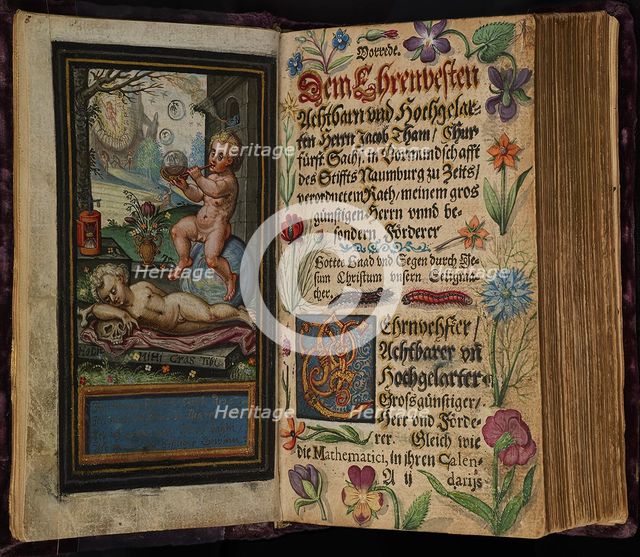 HODIE MIHI Cras TIBI
Vorrede.
Dem Ehrenvesten
Achtbarn vnd Hochgelar-
ten Herrn Jacob Tham/ Chur-
fürst. Sachs. in Vormundschafft
des Stiffts Naumburg zu Zeits/
verordneten Rath/ meinem gros
günstigen Herrn vnnd be-
sondern Förderer
Gottes Gnad vnd Segen durch Je-
sum Christum vnsern Seligma-
cher.
Ehrnvehster/
Achtbarer vñ
Hochgelarter
Großgünstiger/
Herr vnd Förde
rer. Gleich wie
die Mathematici, in ihren Calen-
A ij darijs
Heritage
Heritage
Heritage
Heritage
Heritage
Heritage
Heritage
Heritage